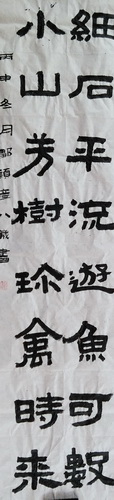 細石平流遊魚可數
小山芳樹珍禽時来
丙申冬月鄒頔彦八歲書